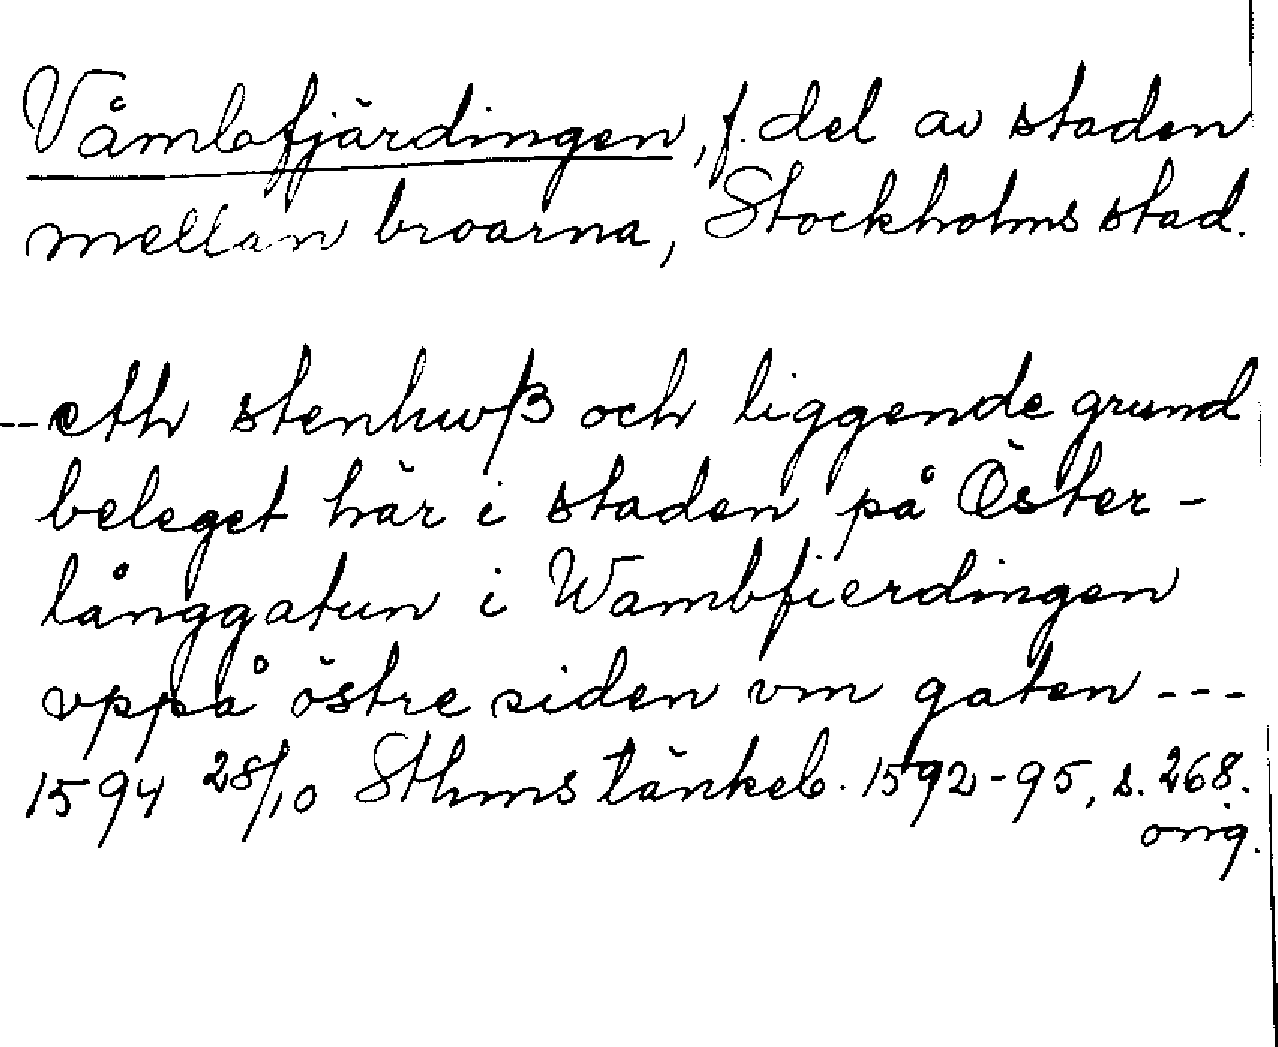 Våmbfjärdingen, f. del av staden
mellan broarna, Stockholms stad.
-- eth stenhwß och liggende grund
beleget här i staden på Öster-
långgatun i Wambfierdingen
vppå östre siden vm gaten ---
1594 28/10 Sthms tänkeb. 1592-95, s. 268.
orig.